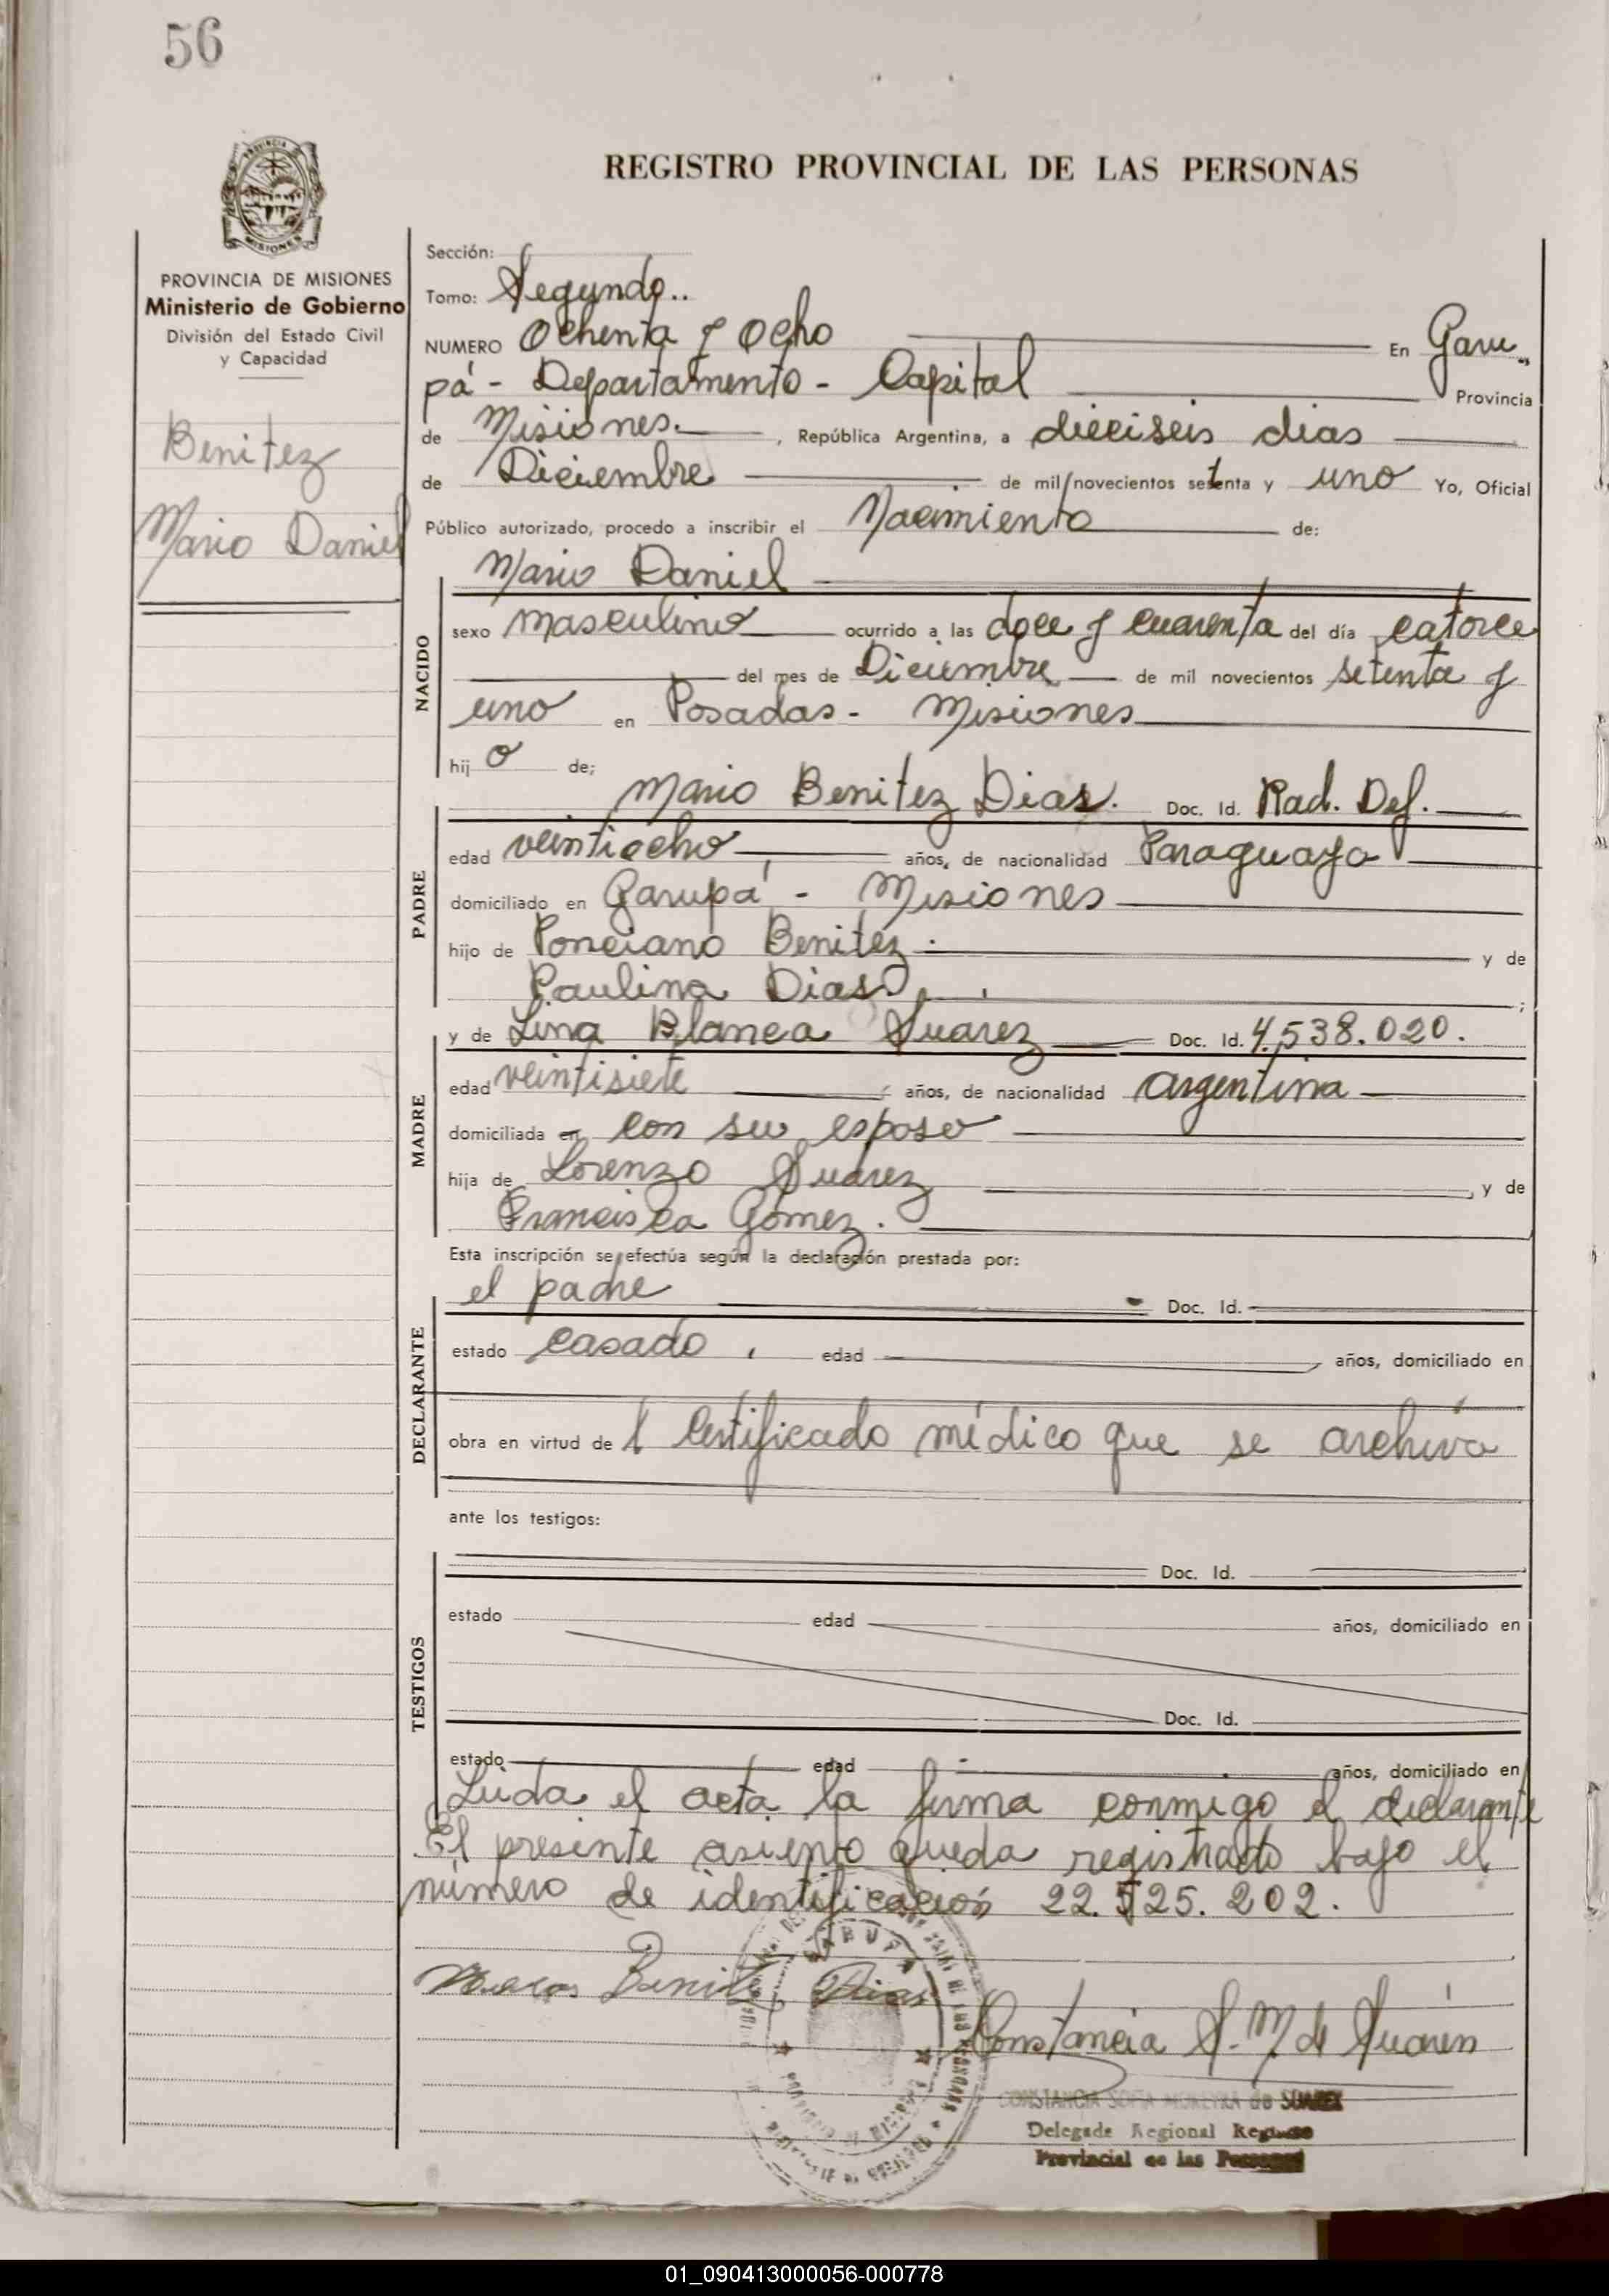 56
REGISTRO PROVINCIAL DE LAS PERSONAS
PROVINCIA DE MISIONES
Ministerio de Gobierno
División del Estado Civil
y Capacidad
Benitez
Mario Daniel
Sección:
Tomo: Segundo..
NUMERO Ochenta y Ocho En Garu
pá - Departamento - Capital Provincia
de Misiones. , República Argentina, a dieciseis dias
de Diciembre de mil novecientos setenta y uno Yo, Oficial
Público autorizado, procedo a inscribir el Nacimiento de:
Mario Daniel
NACIDO
sexo masculino ocurrido a las doce y cuarenta del día catorce
del mes de Diciembre de mil novecientos setenta y
uno en Posadas - Misiones
hij o de;
Mario Benitez Dias. Doc. Id. Rad. Def.
PADRE
edad veintiocho años, de nacionalidad Paraguaya
domiciliado en Garupá - Misiones
hijo de Ponciano Benitez. y de
Paulina Dias ;
y de Lina Blanca Suarez Doc. Id. 4.538.020.
MADRE
edad veintisiete años, de nacionalidad argentina
domiciliada en con su esposo
hija de Lorenzo Suarez , y de
Francisca Gómez.
Esta inscripción se efectúa según la declaración prestada por:
el padre Doc. Id.
DECLARANTE
estado casado , edad , años, domiciliado en
obra en virtud de 1 Certificado médico que se archiva
ante los testigos:
TESTIGOS
Doc. Id.
estado edad años, domiciliado en
Doc. Id.
estado edad años, domiciliado en
Leida el acta la firma conmigo el declarante
El presente asiento queda registrado bajo el
número de identificación 22.525.202.
Benitez Dias
Constancia S. M de Suárez
CONSTANCIA SOFIA MOREYRA de SUAREZ
Delegada Regional Registro
Provincial de las Personas
01_090413000056-000778